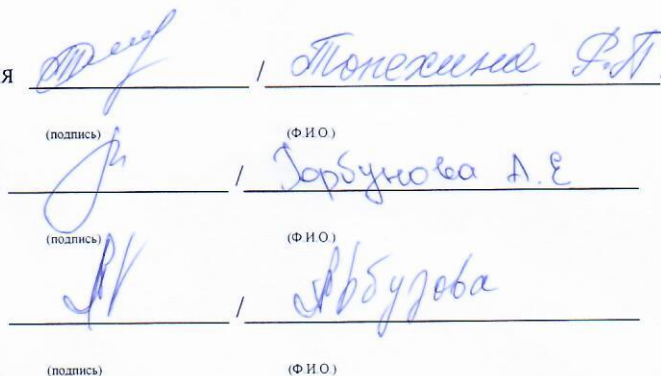 Я / Топехина Р.П.
(подпись) (Ф.И.О.)
/ Горбунова А.Е
(подпись) (Ф.И.О.)
/ Арбузова
(подпись) (Ф.И.О.)